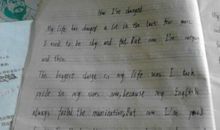 How I've changed
My life has changed a lot in the last few years.
I used to be shy and fat. But now I'm outgoing
and thin.
The biggest change in my life was I took
pride in my own, because my English
always failed the examination, But now I'm good